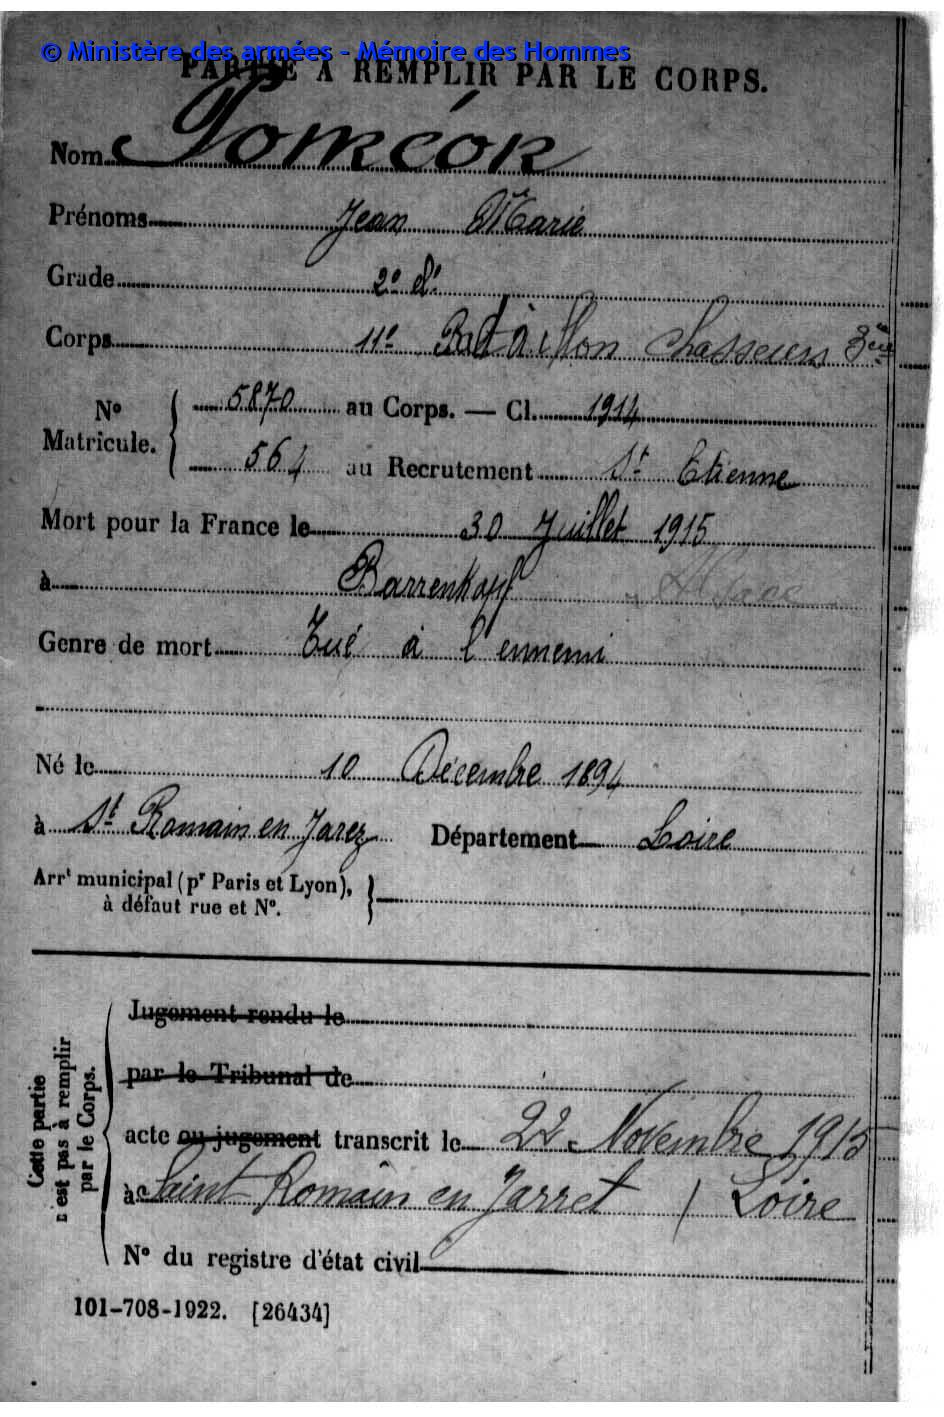 © Ministère des armées - Mémoire des Hommes
PARTIE A REMPLIR PAR LE CORPS.
Nom Poméon
Prénoms Jean Marie
Grade 2e cl.
Corps 11e Bataillon Chasseurs
No Matricule. { 5870 au Corps. — Cl. 1914
564 au Recrutement St Etienne
Mort pour la France le 30 Juillet 1915
à Barrenkopf Alsace
Genre de mort Tué à l'ennemi
Né le 10 Décembre 1894
à St Romain en Jarez Département Loire
Arrt municipal (pr Paris et Lyon),
à défaut rue et No.
Cette partie
n'est pas à remplir
par le Corps.
Jugement rendu le
par le Tribunal de
acte ou jugement transcrit le 22 Novembre 1915
à Saint Romain en Jarret / Loire
No du registre d'état civil
101-708-1922. [26434]